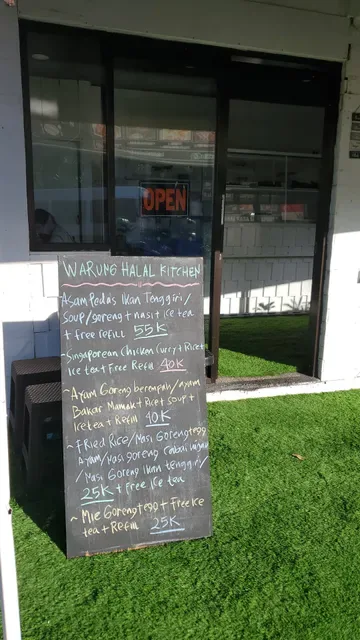 OPEN
WARUNG HALAL KITCHEN
Asam Pedas Ikan Tenggiri/
Soup/goreng + nasi + ice tea
+ free refill 55K
~ Singaporean Chicken Curry + Rice +
Ice tea + Free Refill 40K
~ Ayam Goreng berempah/ayam
Bakar Mamak + Rice + Soup +
Ice tea + Refill 40K
~ Fried Rice/Nasi Goreng + egg
Ayam/Nasi goreng
/Nasi Goreng Ikan tenggiri/
25K + Free Ice tea
~ Mie Goreng + egg + Free Ice
tea + Refill 25K